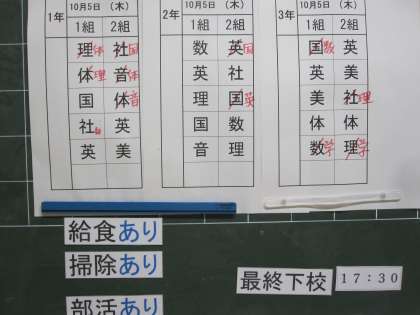 10月5日 (木) 10月5日 (木) 10月5日 (木)
1年 2年 3年
1組 2組 1組 2組 1組 2組
理体 社国 数 英国 国数 英
体理 音体 英 社 英 美
国 体音 理 国英 美 社理
社 英 国 数 体 体
英 美 音 理 数学 理学
給食あり
掃除あり
部活あり
最終下校 17:30